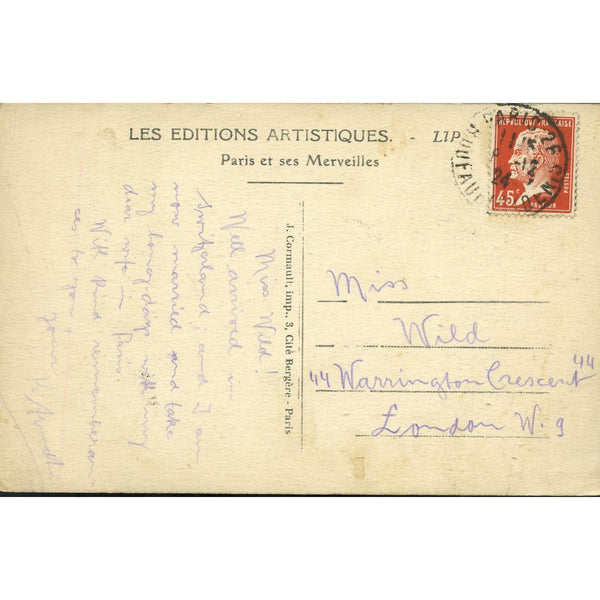 LES EDITIONS ARTISTIQUES. - LIP
Paris et ses Merveilles
REPUBLIQUE FRANCAISE
45c
POSTES
PASTEUR
11 15
-12
24
Miss Wild!
Well arrived in
Switzerland; and I am
now married and take
my honeydays with my
dear wife in Paris.
With kind remembran
ces to you
yours
J. Cormault, imp., 3, Cité Bergère - Paris
Miss
Wild
"44 Warrington Crescent" "44"
London W. 9